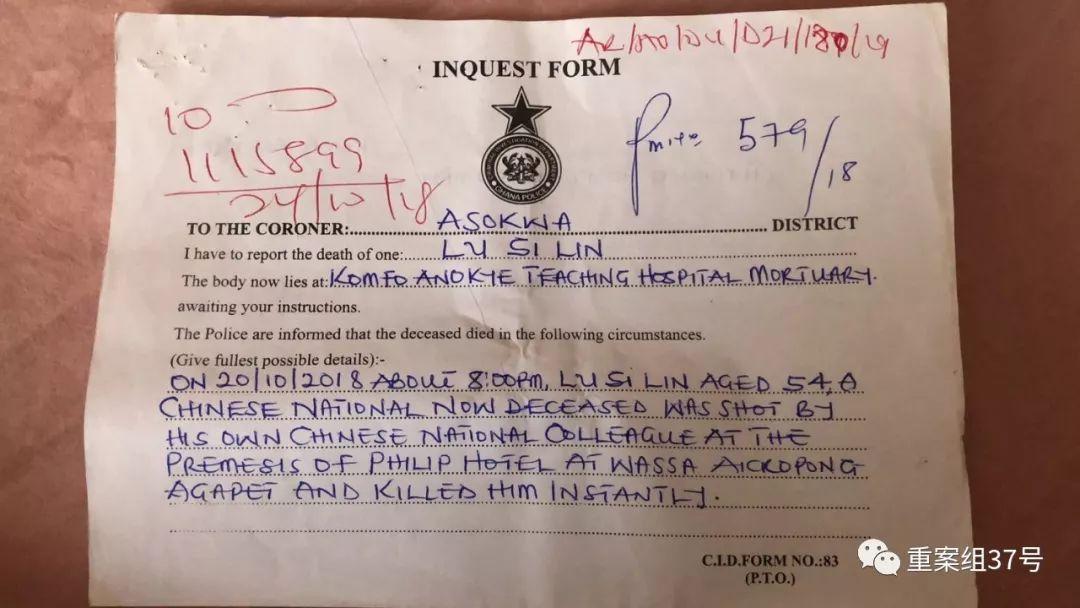 INQUEST FORM
10
1115899
24/10/18
579/18
GHANA POLICE
TO THE CORONER: ASOKWA DISTRICT
I have to report the death of one: LU SI LIN
The body now lies at: KOMFO ANOKYE TEACHING HOSPITAL MORTUARY.
awaiting your instructions.
The Police are informed that the deceased died in the following circumstances.
(Give fullest possible details):-
ON 20/10/2018 ABOUT 8:00PM, LU SI LIN AGED 54, A
CHINESE NATIONAL NOW DECEASED WAS SHOT BY
HIS OWN CHINESE NATIONAL COLLEAGUE AT THE
PREMESIS OF PHILIP HOTEL AT WASSA AICKOPONG
AGAPET AND KILLED HIM INSTANTLY.
C.I.D.FORM NO.:83
(P.T.O.)
重案组37号